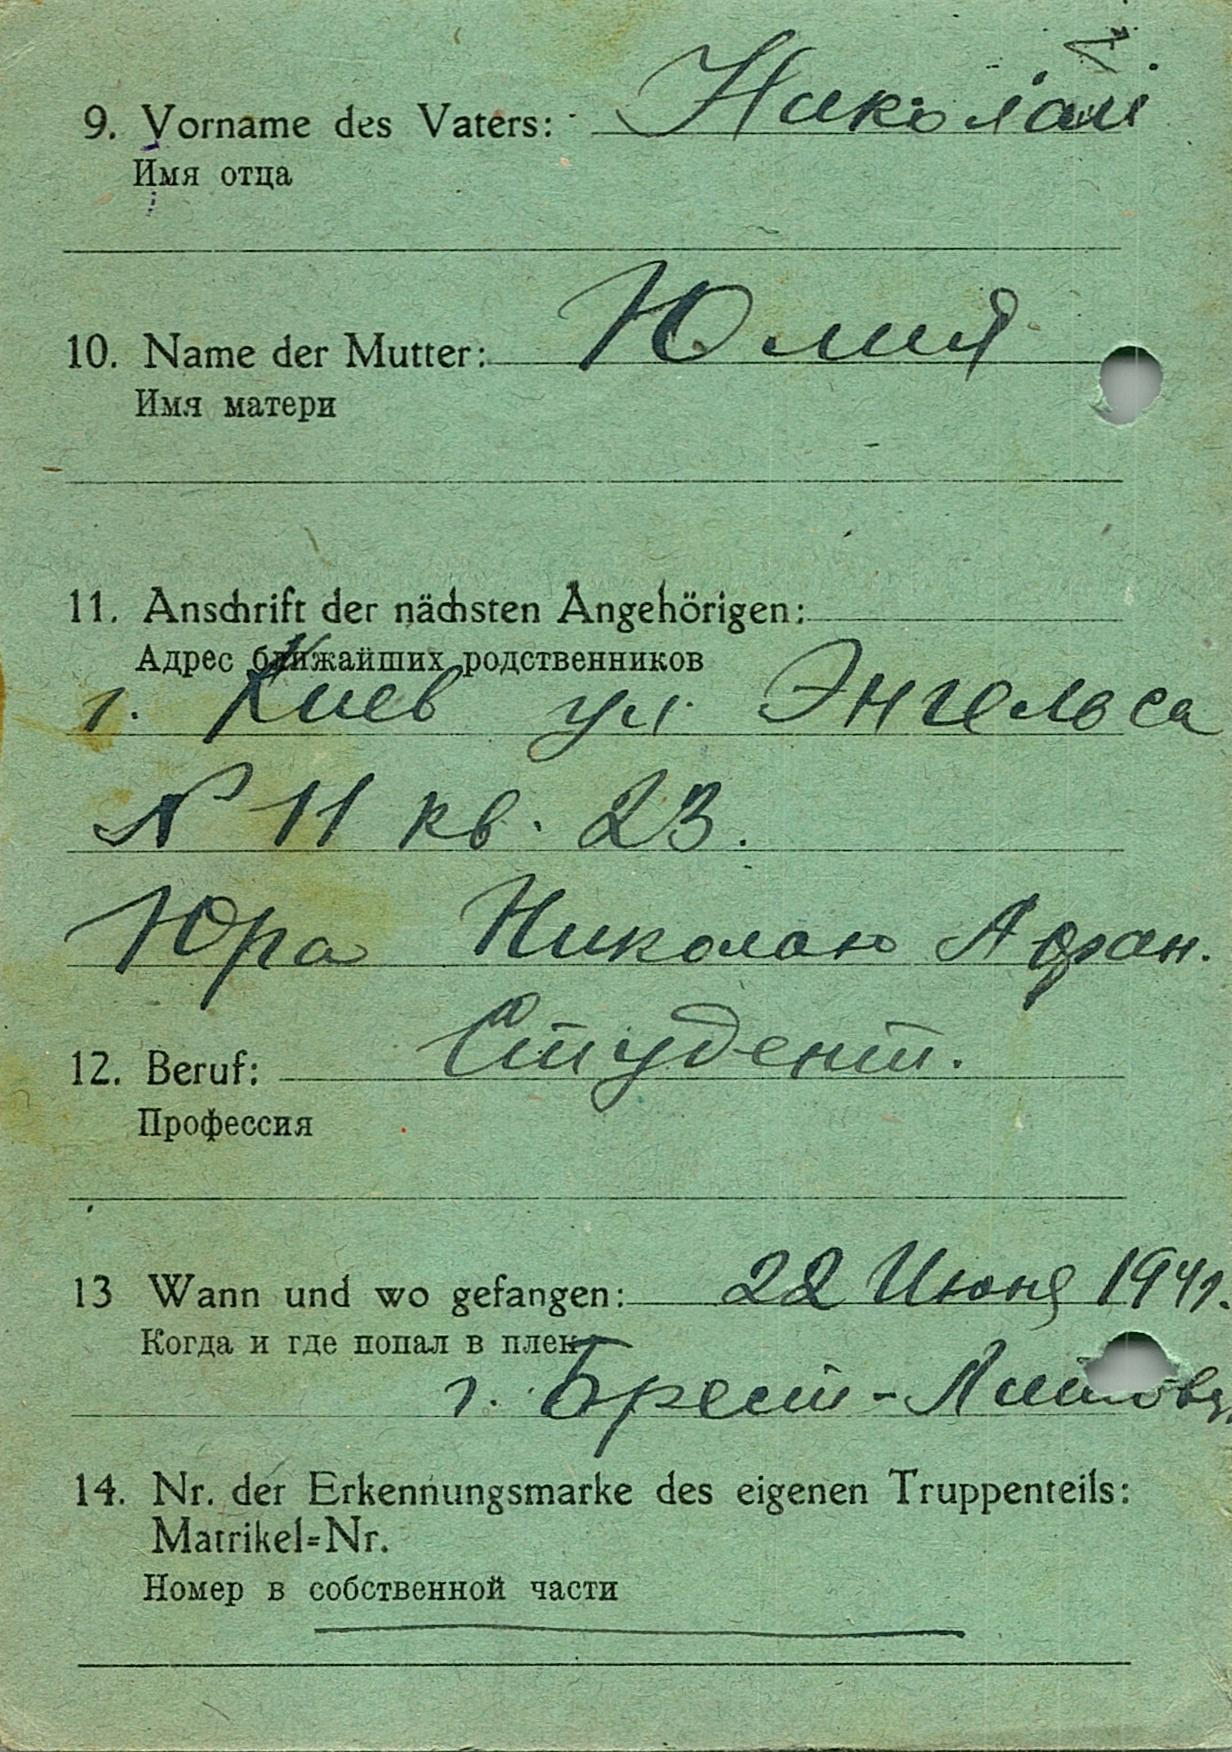 9. Vorname des Vaters: Николай
Имя отца
10. Name der Mutter: Юлия
Имя матери
11. Anschrift der nächsten Angehörigen:
Адрес ближайших родственников
г. Киев ул. Энгельса
N 11 кв. 23.
Юра Николаю Афан.
12. Beruf: Студент.
Профессия
13 Wann und wo gefangen: 22 Июня 1941.
Когда и где попал в плен
г. Брест-Литовск
14. Nr. der Erkennungsmarke des eigenen Truppenteils:
Matrikel=Nr.
Номер в собственной части